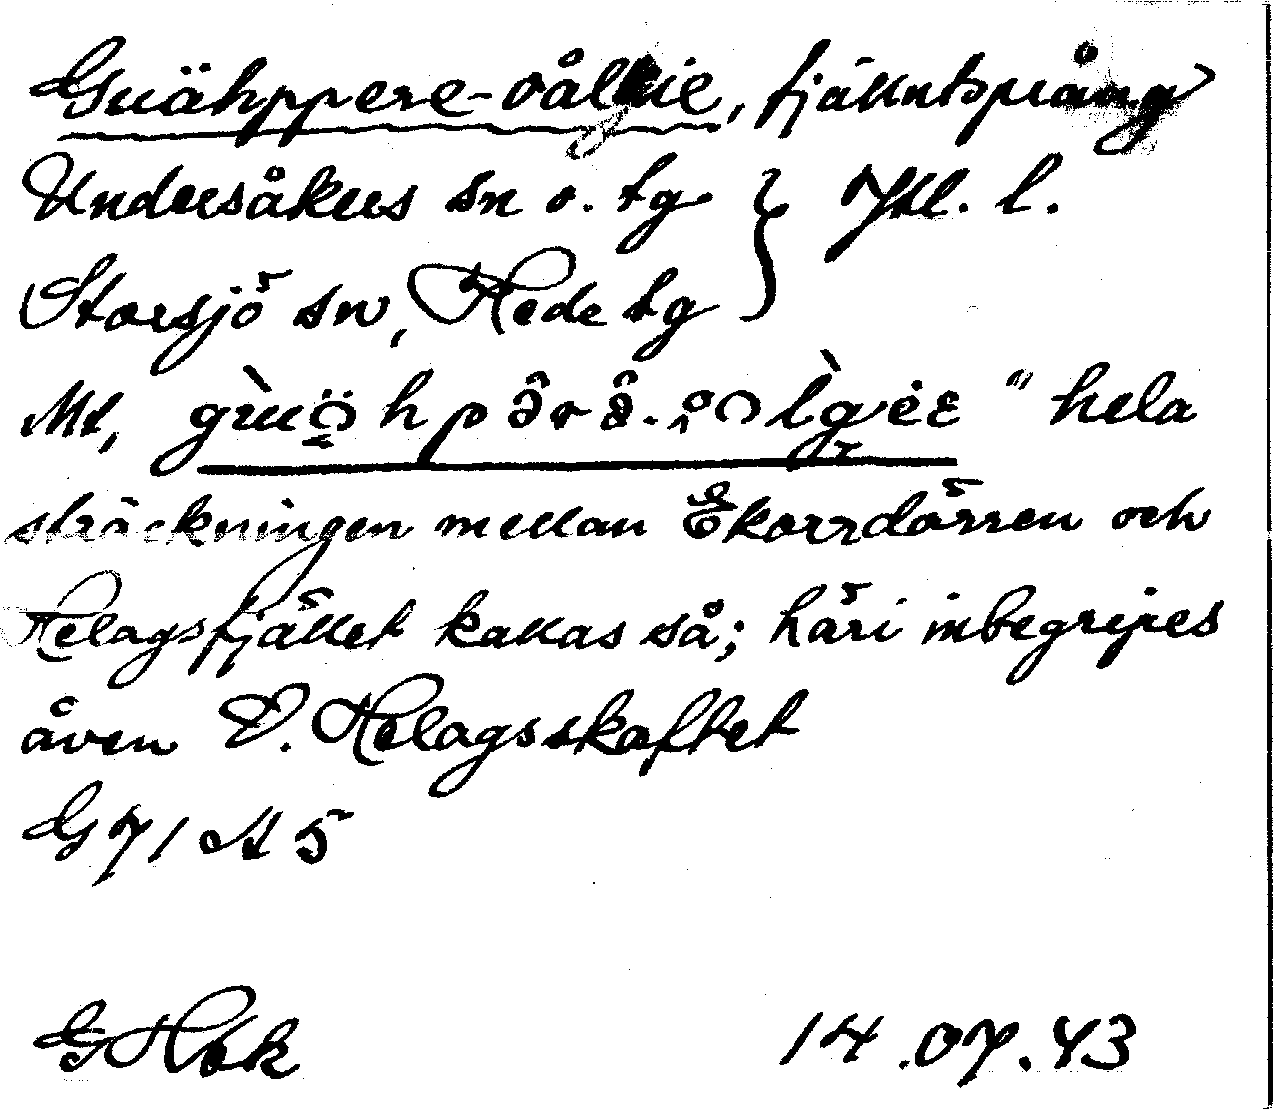 Guähppere-vålkie, fjällutsprång
Undersåkers sn o. tg } Jtl. l.
Storsjö sn, Hede tg
Mt, "hela
sträckningen mellan Ekorrdörren och
Helagsfjället kallas så; häri inbegripes
även V. Helagsskaftet
G 71 A 5
G Hök 14.07.43